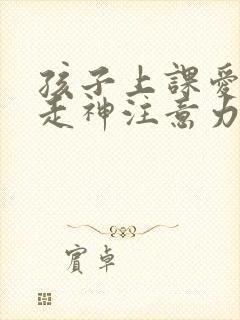 孩子上課愛
走神注意力
賓卓